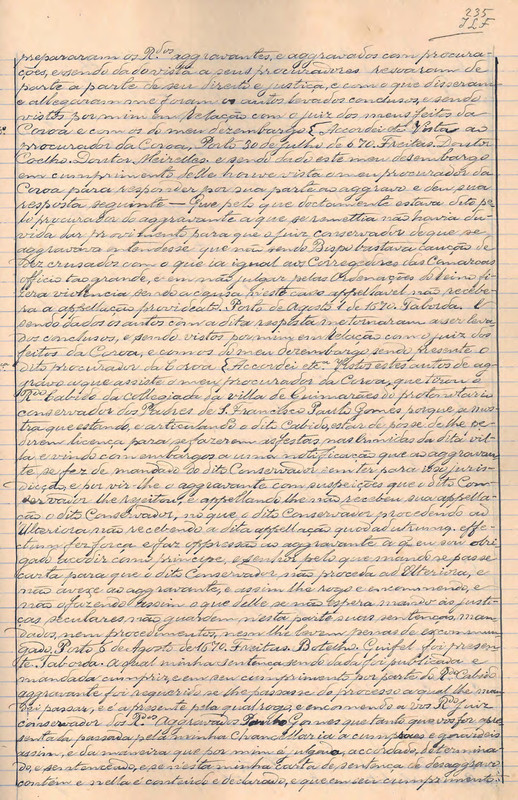 235
I L F
prepararam os R.dos aggravantes, e aggravados com procura-
ções, e sendo dado vista a seus procuradores rezoaram de
parte a parte de seu direito e justiça, e com o que disseram
e allegaram me foram os autos levados conclusos, e sendo
vistos por mim em Relação com o juiz dos meus feitos da
Coroa e com os do meu dezembargo { Accordei etc Vista ao
procurador da Coroa, Porto 30 de julho de 670. Freitas. Doutor
Coelho. Doutor Meirelles. e sendo dado este meu desembargo
em cumprimento delle houve vista o meu procurador da
Coroa para responder por sua parte ao aggravo e deu sua
resposta seguinte — Que pelo que doctamente estava dito pe-
lo procurador do aggravante a que se remettia não havia du-
vida dar provimento para que o juiz conservador de que se
aggravava entendesse que não sendo Bispo bastava caução de
dez crusados com o que ia igual aos Corregedores das Comarcas
officio tão grande, e em não julgar pelas Ordenações do Reino fi-
zera violencia sendo a causa neste caso appellavel não recebe-
ra a appellação Porto de Agosto 1 de 1670. Taborda. E
sendo dados os autos com a dita resposta me tornaram a ser leva-
dos conclusos, e sendo vistos por mim em Relação com o juiz dos
feitos da Coroa, e com os do meu Dezembargo sendo presente o
dito procurador da Coroa { Accordei etc Vistos estes autos de ag-
gravo a que assiste o meu procurador da Coroa, que tirou o
R.do Cabido da Collegiada da villa de Guimarães do protonotario
conservador dos Padres de S. Francisco Paulo Gomes, porque se mos-
tra que estando, e articulando o dito Cabido, estar de posse de lhe pe-
direm licença para se fazerem as festas nas Ermidas da dita vil-
la e vindo com embargos a uma notificação que ao aggravan-
te se fez de mandado do dito Conservador sem ter para isso juris-
dicção, e por vir lhe o aggravante com suspeições que o dito Con-
servador lhe rejeitou, e appellando lhe não recebeu sua appella-
ção o dito Conservador, no que o dito Conservador procedendo ad
Ulteriora não recebendo a dita appellação quoad utrumq. effe-
ctum fez força, e faz oppressão ao aggravante a q eu sou obri-
gado acodir como principe, e senhor pelo que mando se passe
carta para que o dito Conservador não proceda ad Ulteriora, e
não avexe ao aggravante, e assim lhe rogo e encommendo, e
não o fazendo assim o que delle se não Espera mando ás justi-
ças seculares não guardem, nesta parte suas sentenças, man-
dados, nem procedimentos, nem lhe levem penas de excommun-
gado. Porto 5 de Agosto de 1670. Freitas. Botelho. foi presen-
te. Taborda. a qual minha sentença sendo dada foi publicada e
mandada cumprir, e em seu cumprimento por parte do R.do Cabido
aggravante foi requerido se lhe passasse do processo a qual lhe man-
dei passar, e é a presente pela qual rogo, e encommendo a vós R.do juiz
conservador dos R.dos Aggravados Paulo Gomes que tanto que vos for apre-
sentada passada pela minha Chancellaria a cumpraes e guardeis
assim, e da maneira que por mim é julgado, accordado, determina-
do, e sentenceado, e se nesta minha carta de sentença de desaggravo
contém e nella é contido e declarado, e que em seu cumprimento